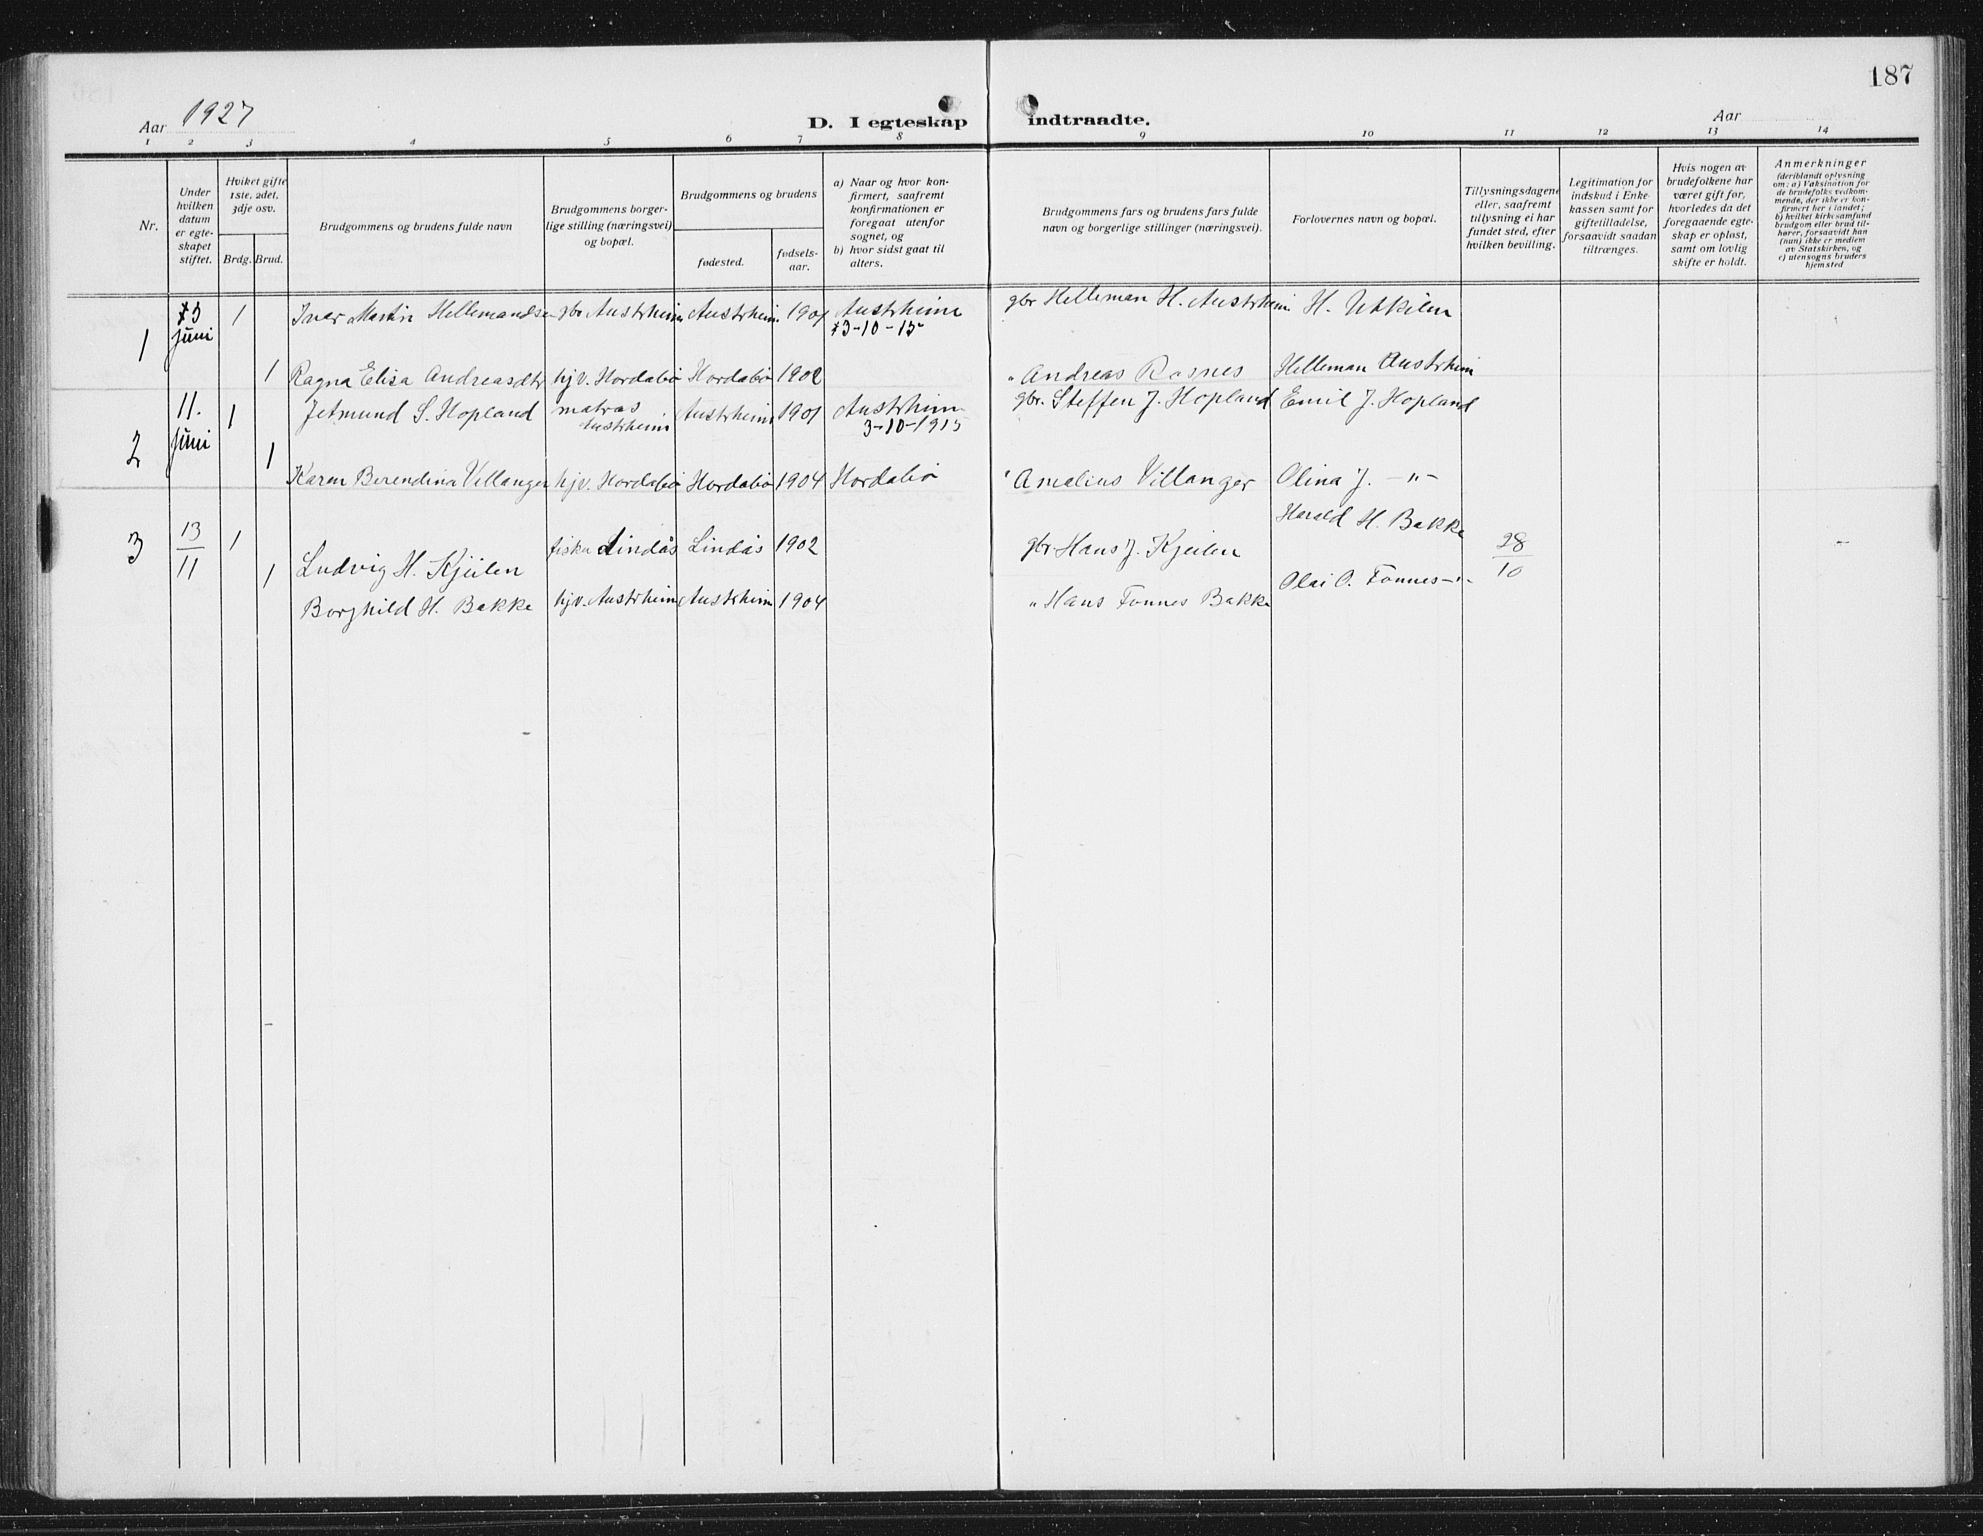 187
Aar 1927
D. I egteskap indtraadte.
Aar
1 2 3 4 5 6 7 8 9 10 11 12 13 14
Nr.
Under hvilken datum er egteskapet stiftet.
Hvilket gifte 1ste, 2det, 3dje osv.
Brdg. Brud.
Brudgommens og brudens fulde navn
Brudgommens borgerlige stilling (næringsvei) og bopæl.
Brudgommens og brudens
fødested. fødselsaar.
a) Naar og hvor konfirmert, saafremt konfirmationen er foregaat utenfor sognet, og
b) hvor sidst gaat til alters.
Brudgommens fars og brudens fars fulde navn og borgerlige stillinger (næringsvei).
Forlovernes navn og bopæl.
Tillysningsdagene eller, saafremt tillysning ei har fundet sted, efter hvilken bevilling.
Legitimation for indskud i Enkekassen samt for giftetilladelse, forsaavidt saadan tiltrænges.
Hvis nogen av brudefolkene har været gift før, hvorledes da det foregaaende egteskap er opløst, samt om lovlig skifte er holdt.
Anmerkninger
(deriblandt oplysning om: a) Vaksination for de brudefolks vedkommende, der ikke er konfirmert her i landet; b) hvilket kirkesamfund brudgom eller brud tilhører, forsaavidt han (hun) ikke er medlem av Statskirken, og c) utensogns bruders hjemsted
1 juni 1 Ivar Martin Hellemandsen gbr Austrheim Austrheim 1901 Austrheim 3-10-15 gbr Helleman H. Austrheim H. Utkilen
1 Ragna Elisa Andreasdtr hjv. Hordabø Hordabø 1902 " Andreas Rosnes Helleman Austrheim
2 11. juni 1 Jetmund S. Hopland matros Austrheim Austrheim 1901 Austrheim 3-10-1915 gbr. Steffen J. Hopland Emil J. Hopland
1 Karen Berendina Villanger hjv. Hordabø Hordabø 1904 Hordabø " Amalius Villanger Olina J. -"-
3 13/11 1 Ludvig H. Kjeilen fisker Lindås Lindås 1902 gbr Hans J. Kjeilen Harald H. Bakke 28/10
1 Borghild H. Bakke hjv. Austrheim Austrheim 1904 " Hans Fonnes Bakke Olai O. Fonnes -"-